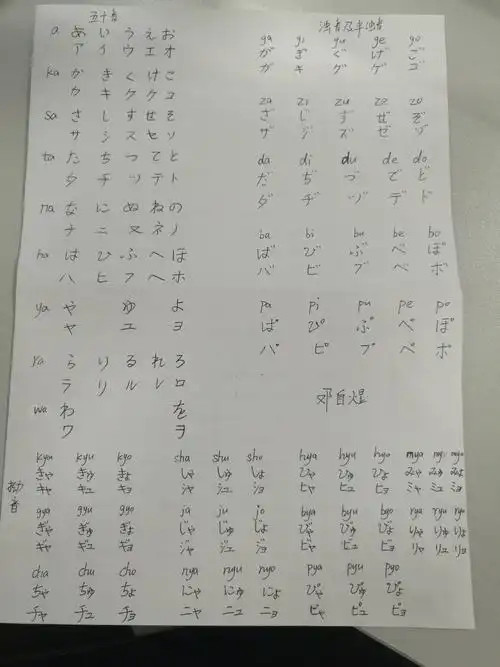 五十音
a あ い う え お
ア イ ウ エ オ
ka か き く け こ
カ キ ク ケ コ
sa さ し す せ そ
サ シ ス セ ソ
ta た ち つ て と
タ チ ツ テ ト
na な に ぬ ね の
ナ ニ ヌ ネ ノ
ha は ひ ふ へ ほ
ハ ヒ フ ヘ ホ
ya や ゆ よ
ヤ ユ ヨ
ra ら り る れ ろ
ラ リ ル レ ロ
wa わ を
ワ ヲ
浊音及半浊音
ga gi gu ge go
が ぎ ぐ げ ご
ガ ギ グ ゲ ゴ
za zi zu ze zo
ざ じ ず ぜ ぞ
ザ ジ ズ ゼ ゾ
da di du de do
だ ぢ づ で ど
ダ ヂ ヅ デ ド
ba bi bu be bo
ば び ぶ べ ぼ
バ ビ ブ ベ ボ
pa pi pu pe po
ぱ ぴ ぷ ぺ ぽ
パ ピ プ ペ ポ
邓自煜
拗音
kya kyu kyo sha shu sho hya hyu hyo mya myu myo
きゃ きゅ きょ しゃ しゅ しょ ひゃ ひゅ ひょ みゃ みゅ みょ
キャ キュ キョ シャ シュ ショ ヒャ ヒュ ヒョ ミャ ミュ ミョ
gya gyu gyo ja ju jo bya byu byo rya ryu ryo
ぎゃ ぎゅ ぎょ じゃ じゅ じょ びゃ びゅ びょ りゃ りゅ りょ
ギャ ギュ ギョ ジャ ジュ ジョ ビャ ビュ ビョ リャ リュ リョ
cha chu cho nya nyu nyo pya pyu pyo
ちゃ ちゅ ちょ にゃ にゅ にょ ぴゃ ぴゅ ぴょ
チャ チュ チョ ニャ ニュ ニョ ピャ ピュ ピョ